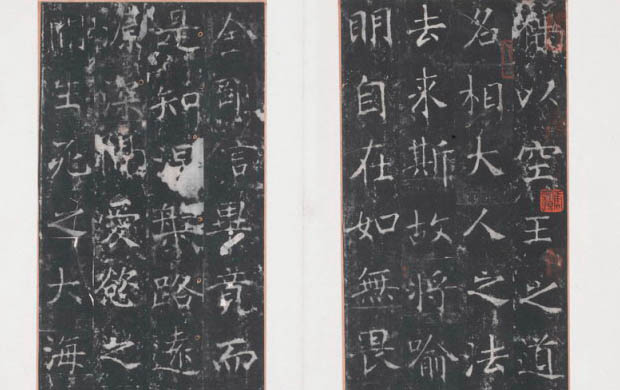 以空王之道
名相大人之法
去來斯故將喻
明自在如無畏
金剛信畢竟而
是知涅槃路遠
源深愛慾之
生死之大海